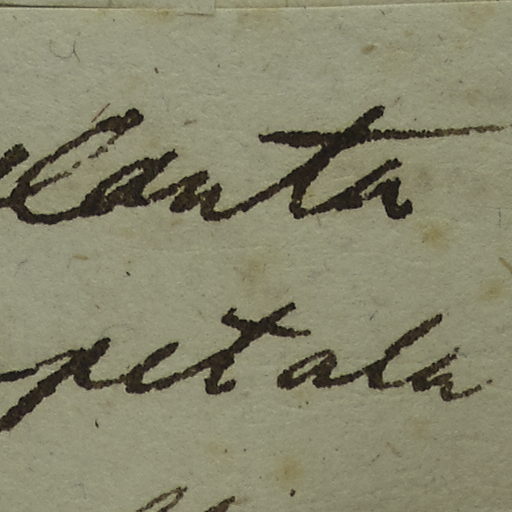 lanta
petala